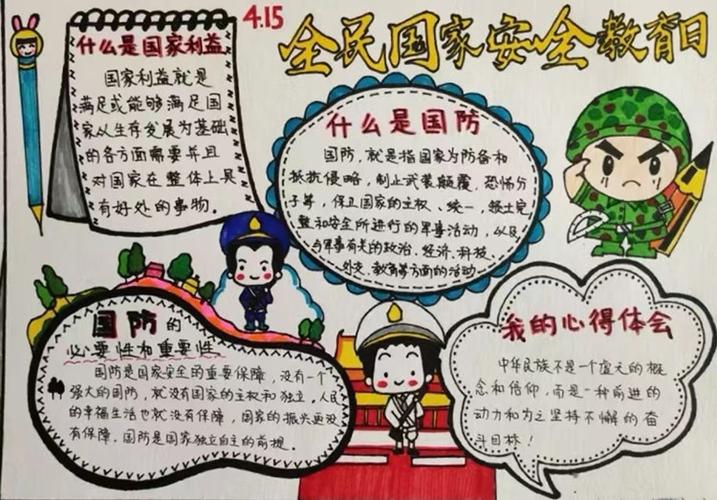 4.15
全民国家安全教育日
什么是国家利益
国家利益就是
满足或能够满足国
家以生存发展为基础
的各方面需要并且
对国家在整体上具
有好处的事物.
什么是国防
国防，就是指国家为防备和
抵抗侵略，制止武装颠覆、恐怖分
子等，保卫国家的主权、统一，领土完
整和安全所进行的军事活动，以及
与军事有关的政治、经济、科技、
外交、教育等方面的活动
国防的
必要性和重要性
国防是国家安全的重要保障，没有一个
强大的国防，就没有国家的主权和独立，人民
的幸福生活也就没有保障，国家的振兴更没
有保障.国防是国家独立自主的前提.
我的心得体会
中华民族不是一个虚无的概
念和信仰，而是一种前进的
动力和为之坚持不懈的奋
斗目标！